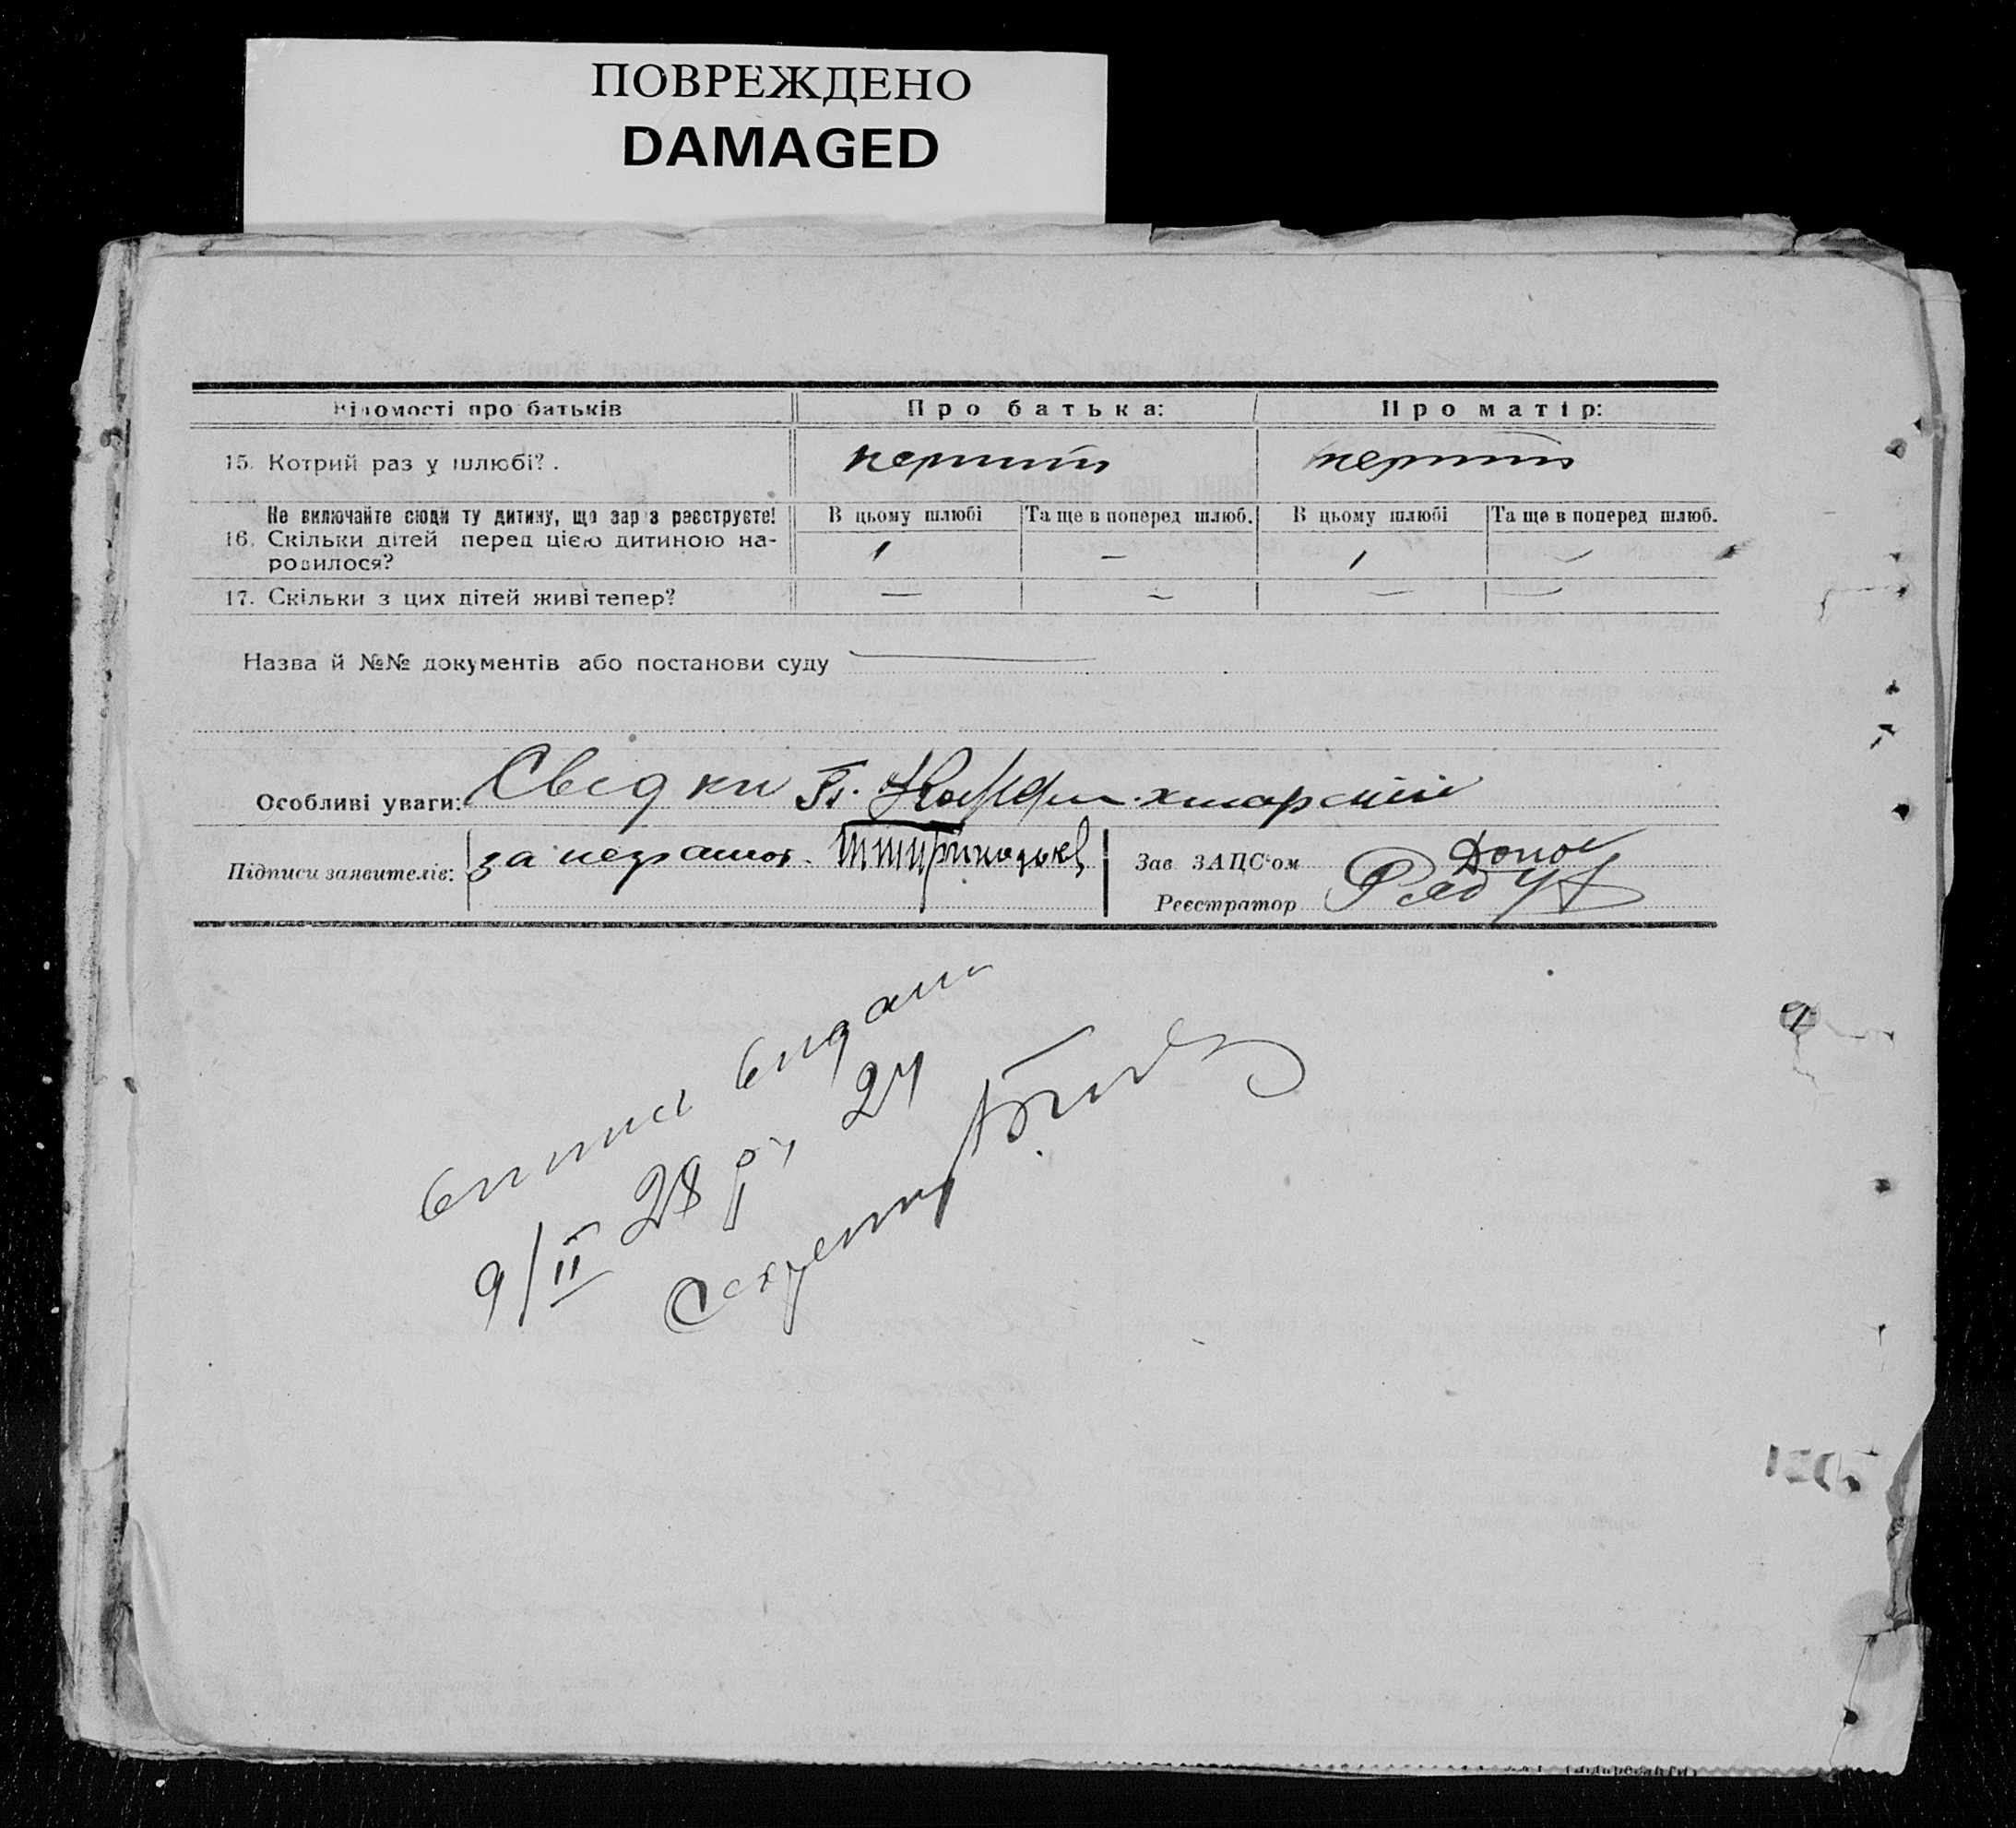 ПОВРЕЖДЕНО
DAMAGED
Відомості про батьків Про батька: Про матір:
15. Котрий раз у шлюбі?. перший перший
Не включайте сюди ту дитину, що зараз реєструєте! В цьому шлюбі Та ще в поперед шлюб. В цьому шлюбі Та ще в поперед шлюб.
16. Скільки дітей перед цією дитиною на-
родилося? 1 — 1 —
17. Скільки з цих дітей живі тепер? — — — —
Назва й №№ документів або постанови суду —
Особливі уваги: Свідки
Підписи заявителів: за неграмот. Зав ЗАЦС'ом
Реєстратор
випис видани
9/II 28 р. 24
Секретар